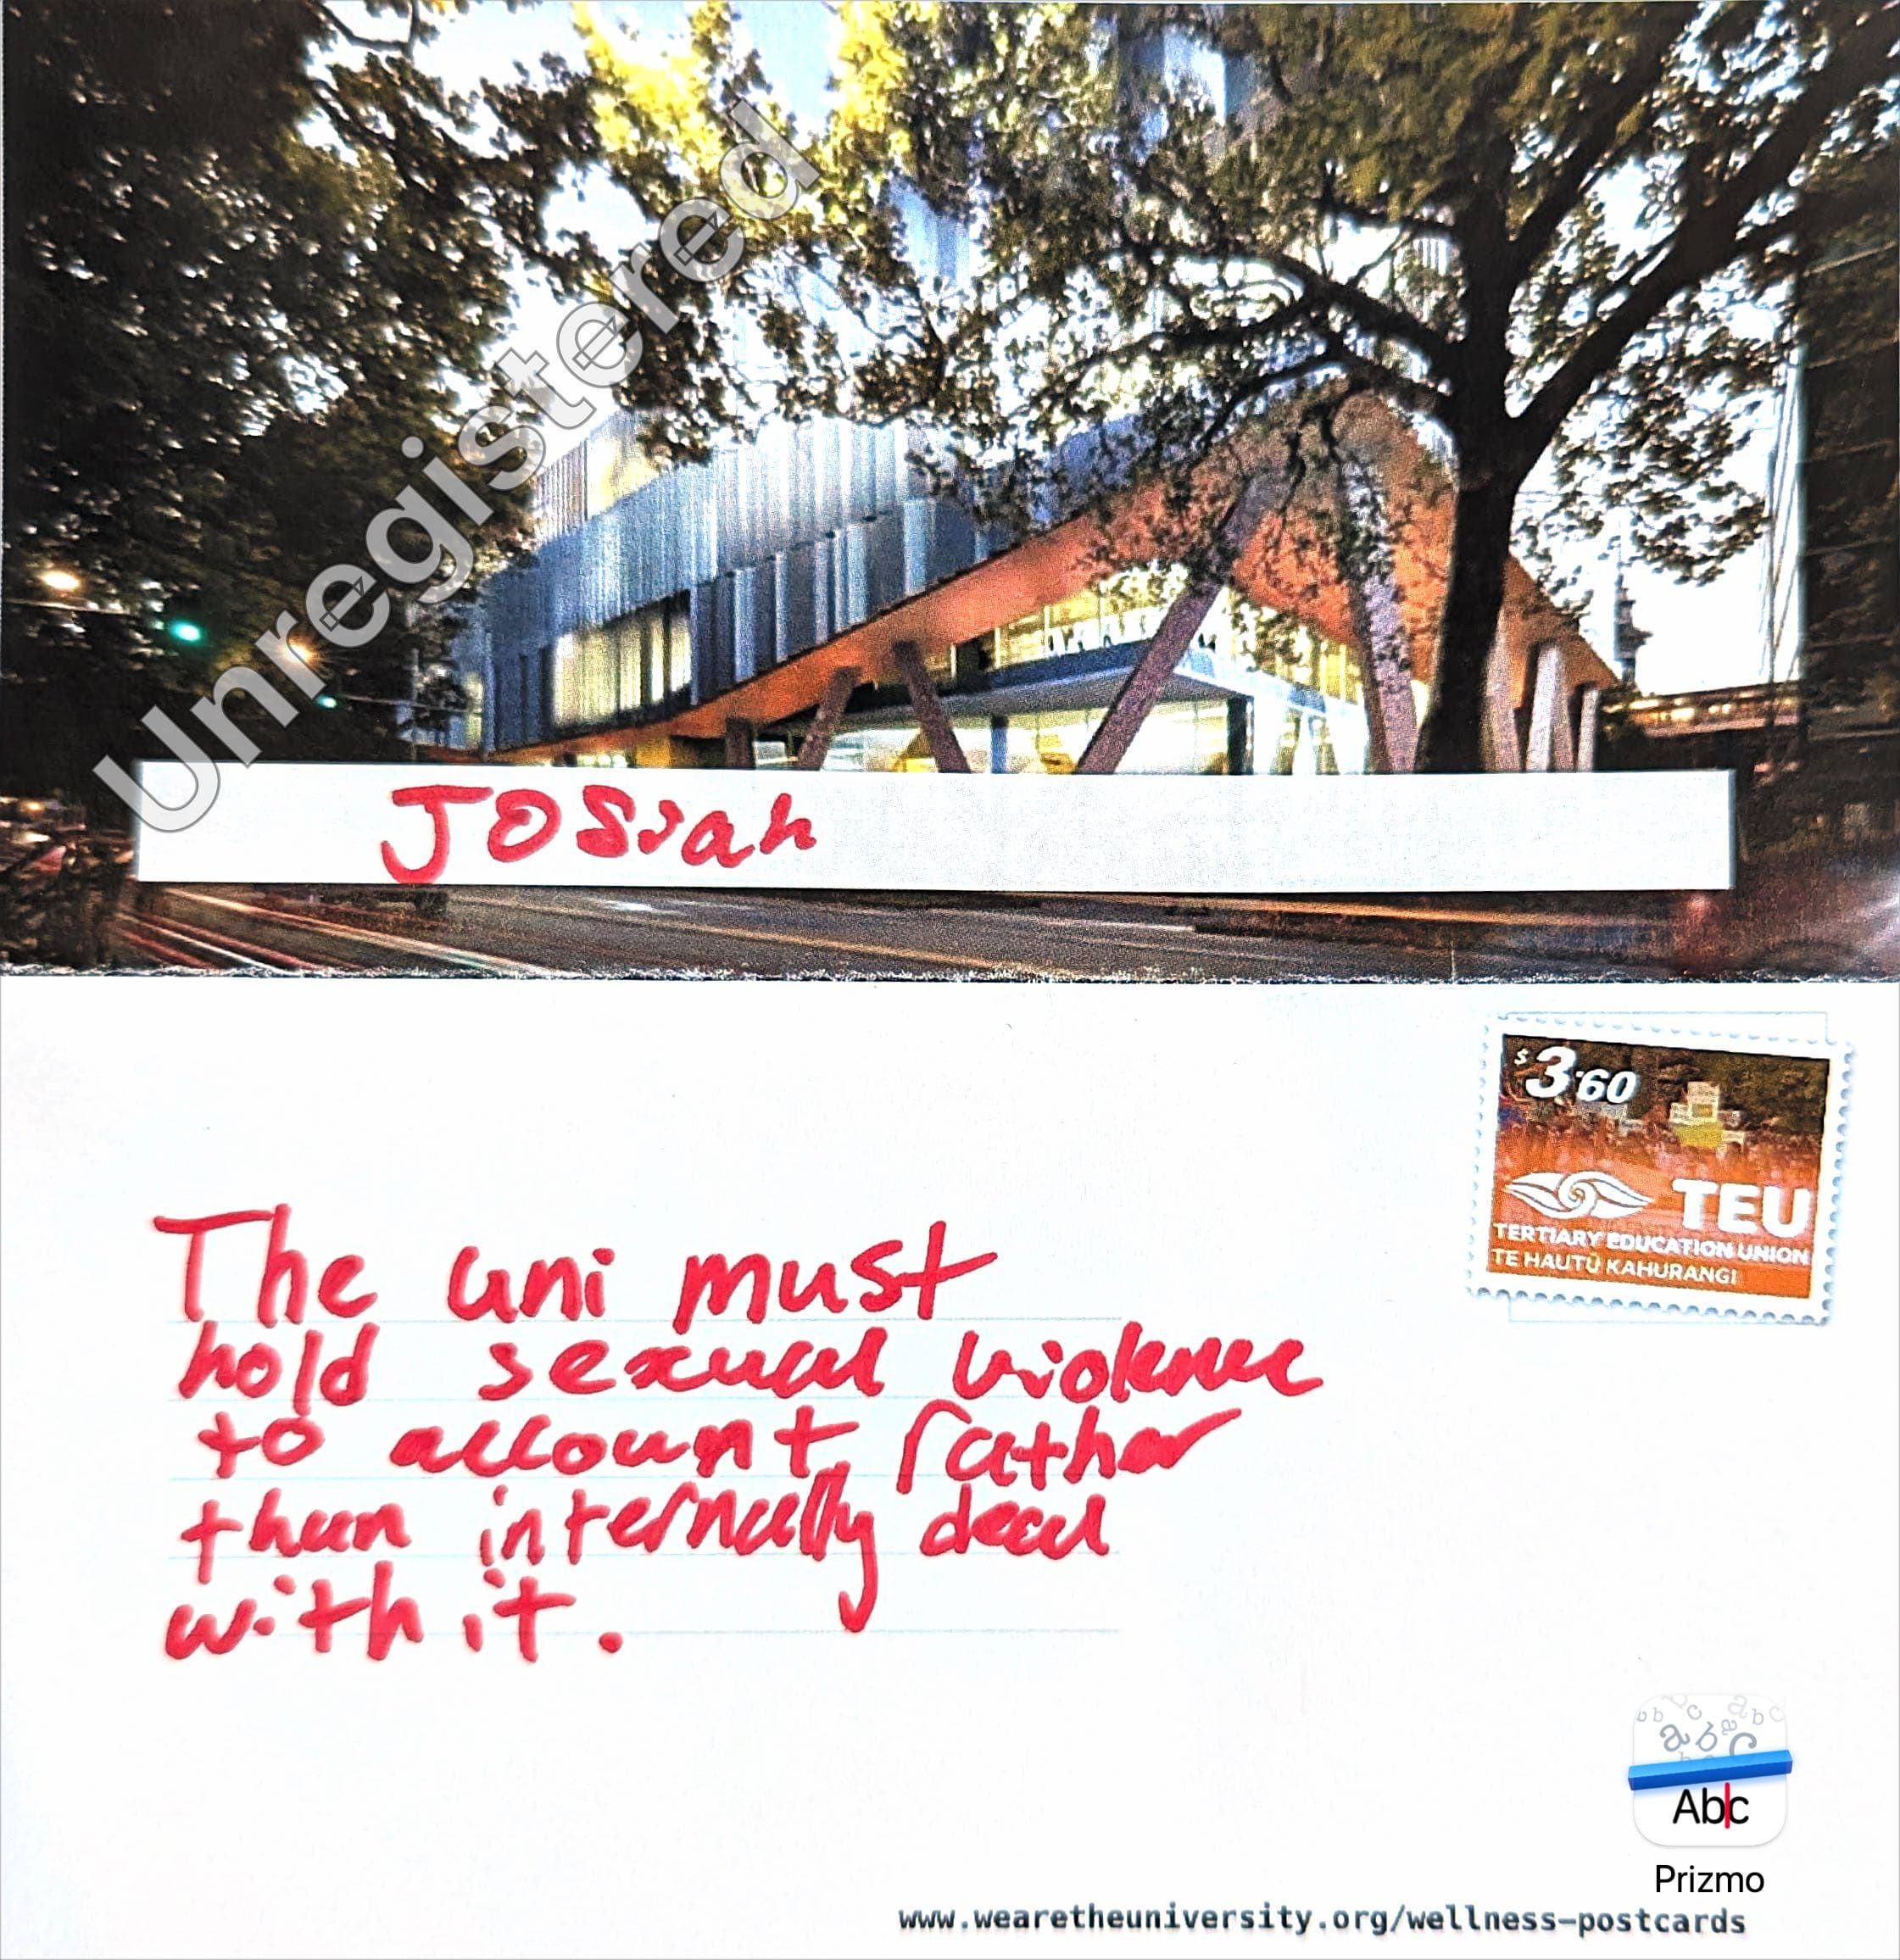 Unregistered
Josiah
$3.60
TEU
TERTIARY EDUCATION UNION
TE HAUTŪ KAHURANGI
The uni must
hold sexual violence
to account, rather
than internally deal
with it.
Abc
Prizmo
www.wearetheuniversity.org/wellness-postcards